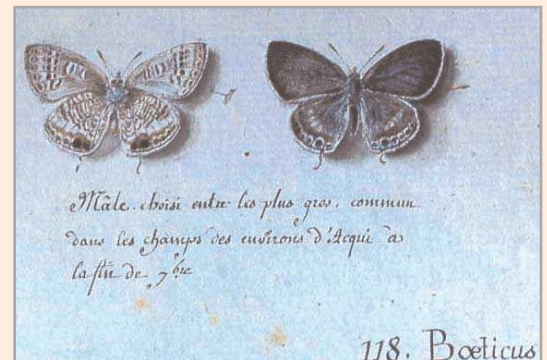 Mâle choisi entre les plus gros, commun
dans les champs des environs d'Acqui a
la fin de 7bre
118. Bœticus